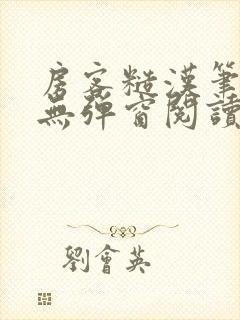 房客糙漢筆
無彈窗閱讀
劉會英